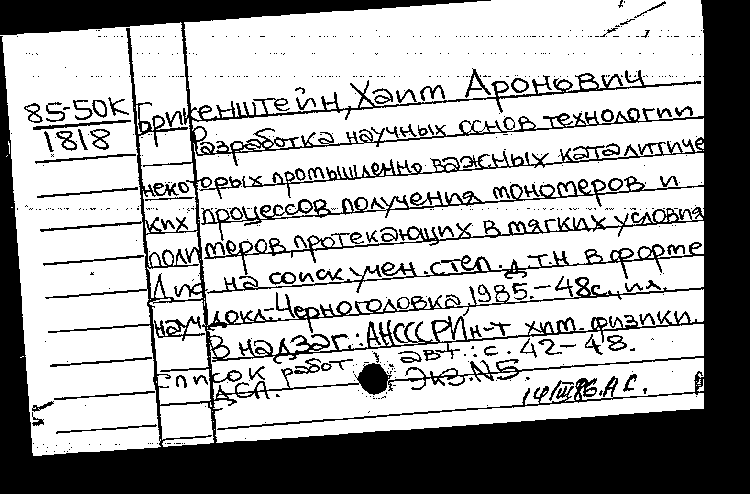 85-50К
1818
Брикенштейн, Хаим Аронович
Разработка научных основ технологии
некоторых промышленно важных каталитиче
ких процессов получения мономеров и
полимеров, протекающих в мягких условия
Дис. на соиск. учен. степ. д.т.н. в форме
науч. докл. Черноголовка, 1985. - 48с., ил.
В надзаг.: АНСССР Ин-т хим. физики.
Список работ авт.: с. 42-48.
ДСП. Экз. N5
14/III 86. А С.